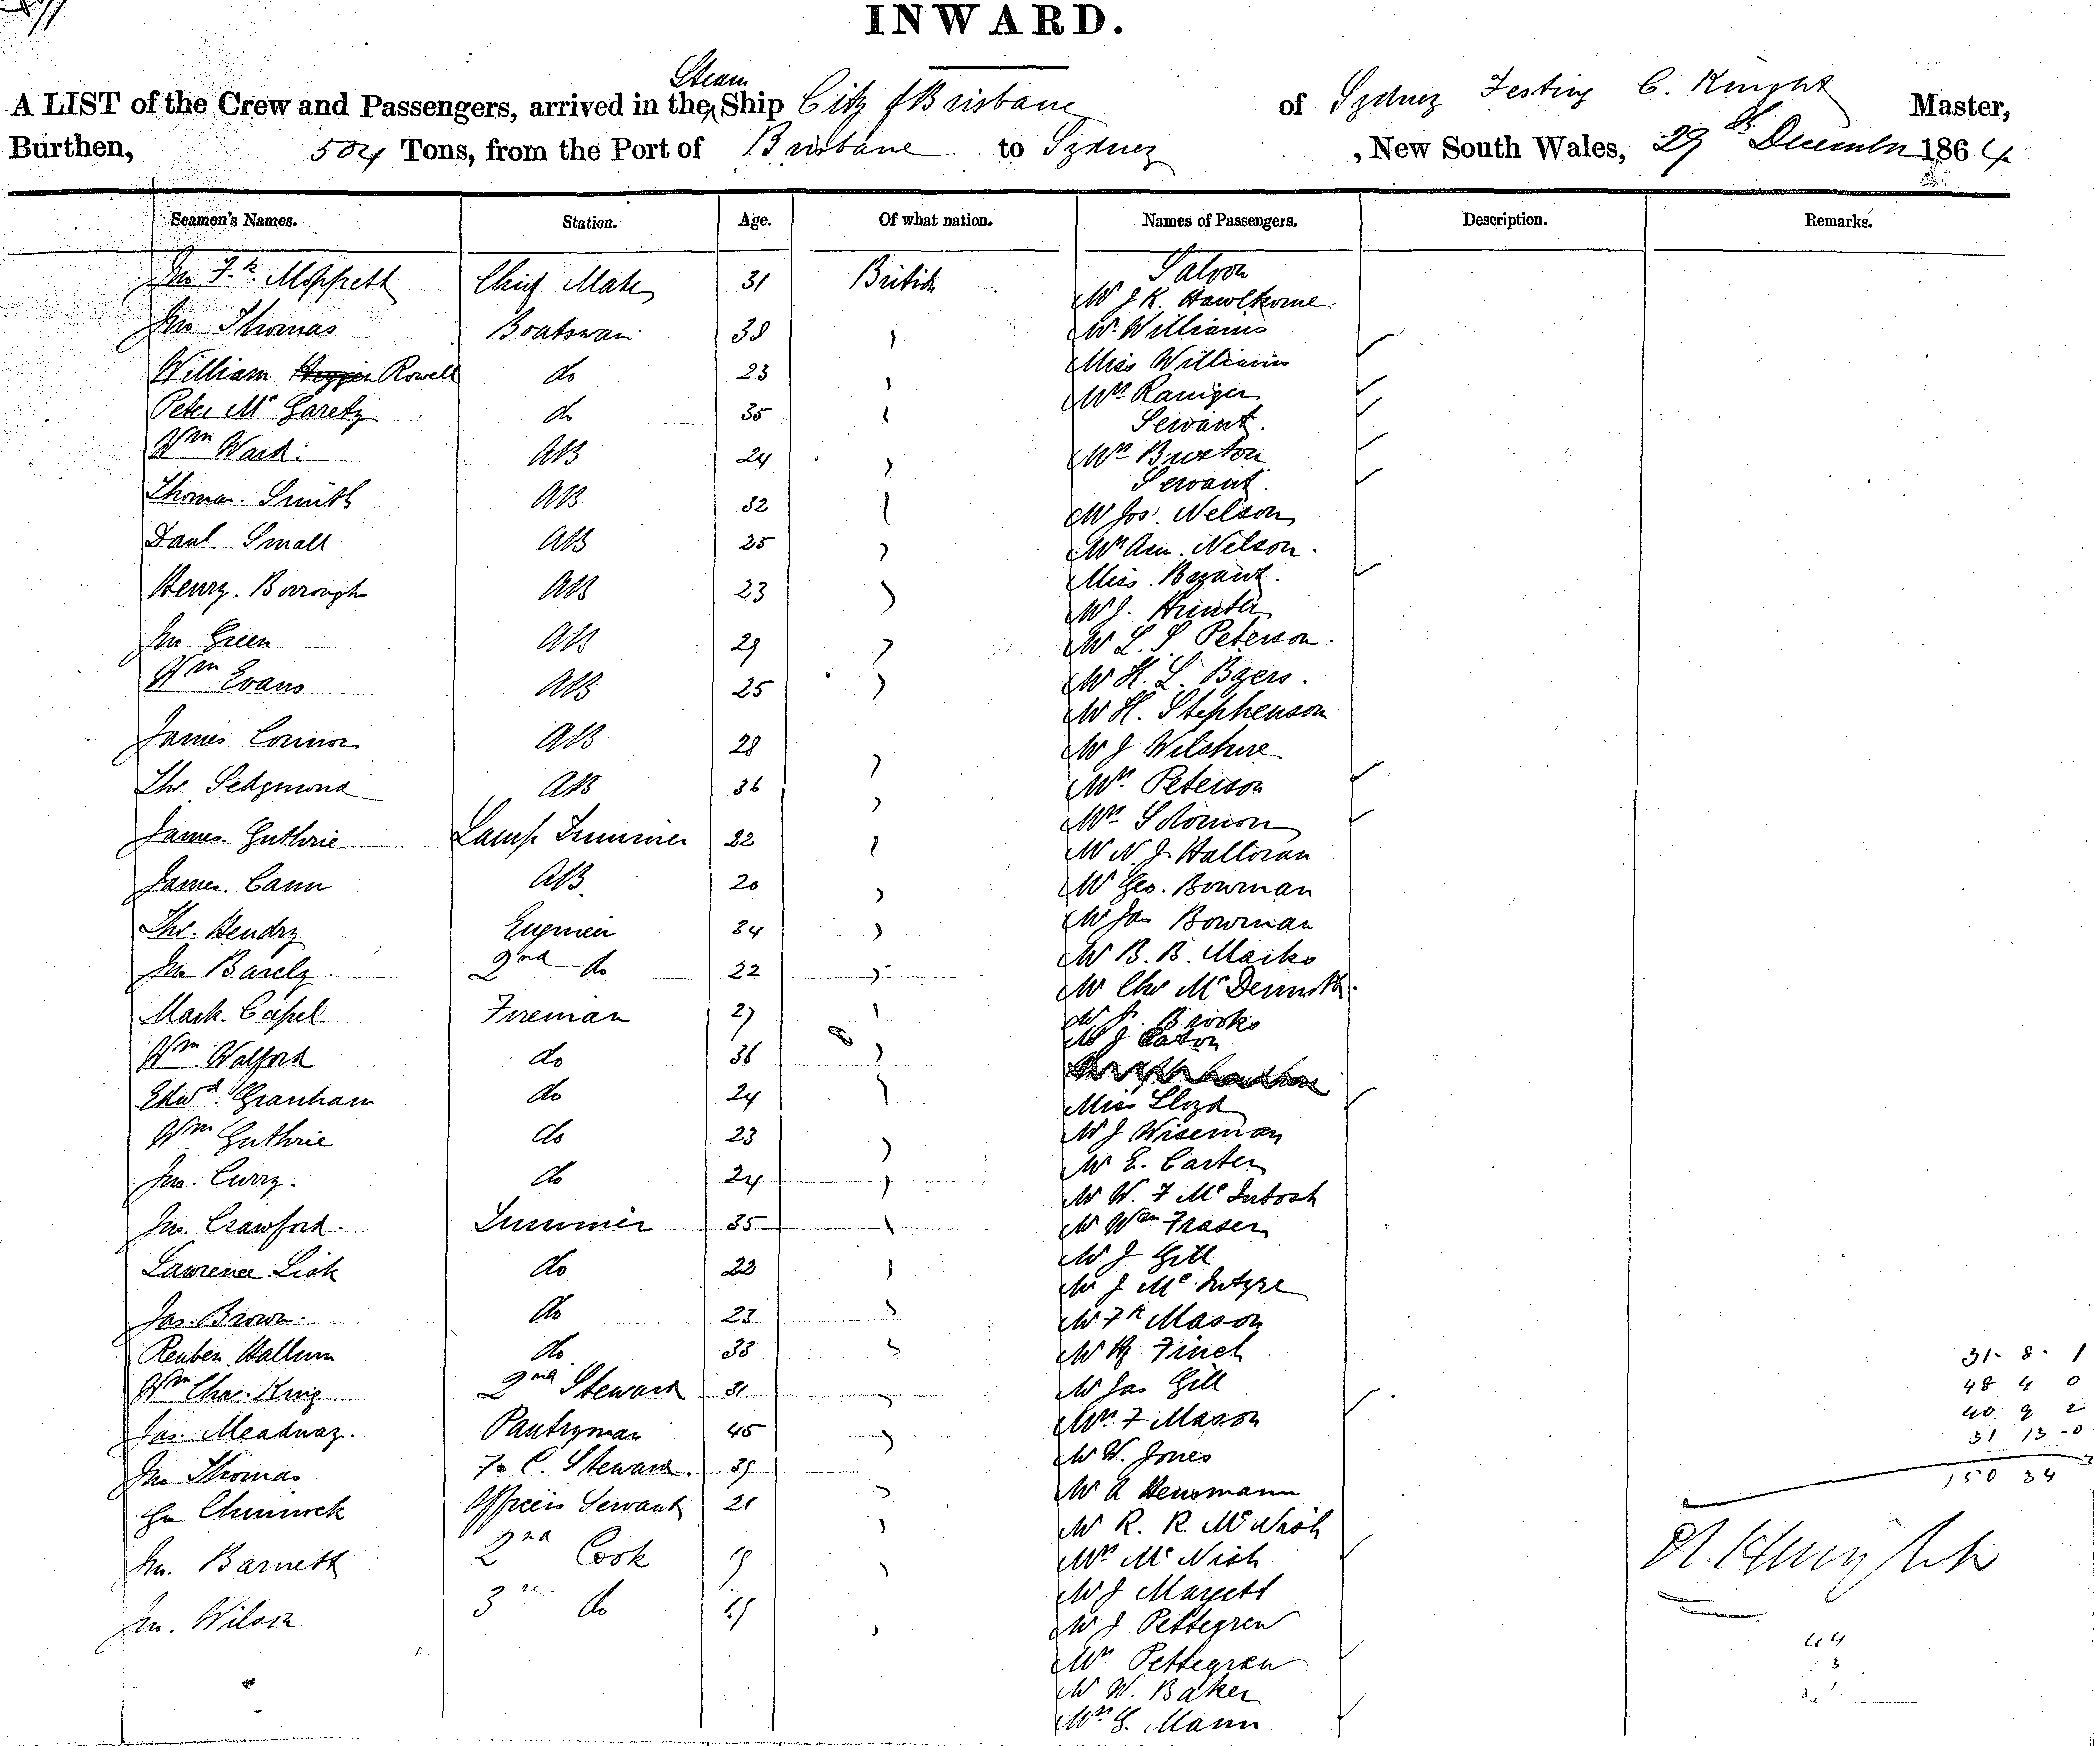 INWARD.
Steam
A LIST of the Crew and Passengers, arrived in the Ship City of Brisbane of Sydney Testing C. Knight Master,
Burthen, 504 Tons, from the Port of Brisbane to Sydney , New South Wales, 29th December 1864
Seamen's Names. Station. Age. Of what nation. Names of Passengers. Description. Remarks.
Saloon
Jno Fk. Moffrett Chief Mate 31 British Mr J K. Hawthorne
Jno Thomas Boatswain 38 Mr. Williams
Miss Williams
William Rowell do 23 Mrs Raniger
Peter Mc Garety do 35 Servant.
Wm Ward. AB 24 Mrs Buxton
Servant.
Thomas Smith AB 32 Mr Jos. Nelson
Danl Small AB 25 Nelson.
Miss
Henry. Borrough AB 23 Mr J. Hunter
Jno Green AB 29 Mr L. S Peterson.
Wm Evans AB 25 Mr H. L. Byers.
Mr H. Stephenson
James Connor AB 28 Mr J Wilshire
Thos Sedgmond AB 36 Mrs. Peterson
Mrs Solomon
James Guthrie Lamp Trimmer 22 Mr N. J. Halloran
James Cann AB 20 Mr Geo. Bowman
Thos. Hendry Engineer 34 Mr Jas Bowman
Mr B. B. Marks
Jno Barely 2nd do 22 Mr Chs McDermott.
Mark. Capel Fireman 27 Mr Brooks
Mr J Eaton
Wm Walford do 36
Edwd. Granham do 24 Miss Lloyd
Wm Guthrie do 23 Mr J Wiseman
Mr E. Carter
Jno. Curry. do 24 Mr W. F McIntosh
Jno. Crawford. Trimmer 35 Mr Wm Fraser
Mr J Gill
Lawrence Lisk do 23 Mr J McIntyre
Jas. Brown. do 23 Mr Fk Mason
Reuben Hallum do 38 Mr Finch 31. 8. 1
Wm Chas. King 2nd Steward 31 Mr Jas Gill 48 4 0
Jas. Meadway. Pantryman 45 Mrs F Mason 40 9 2
Mr W. Jones 31 13 - 0
Jno Thomas Fo C. Steward. 39 Mr A Heussmann 150 34
Chinnock Officers Servant 21 Mr R. R. McNish
Jno. Barnett 2nd Cook 19 Mrs McNish
Mr J Margett
Jno. Wilson 3rd do 19 Mr J Pettegrew
Mrs Pettegrew 44
Mr W. Baker
Mrs G. Mann